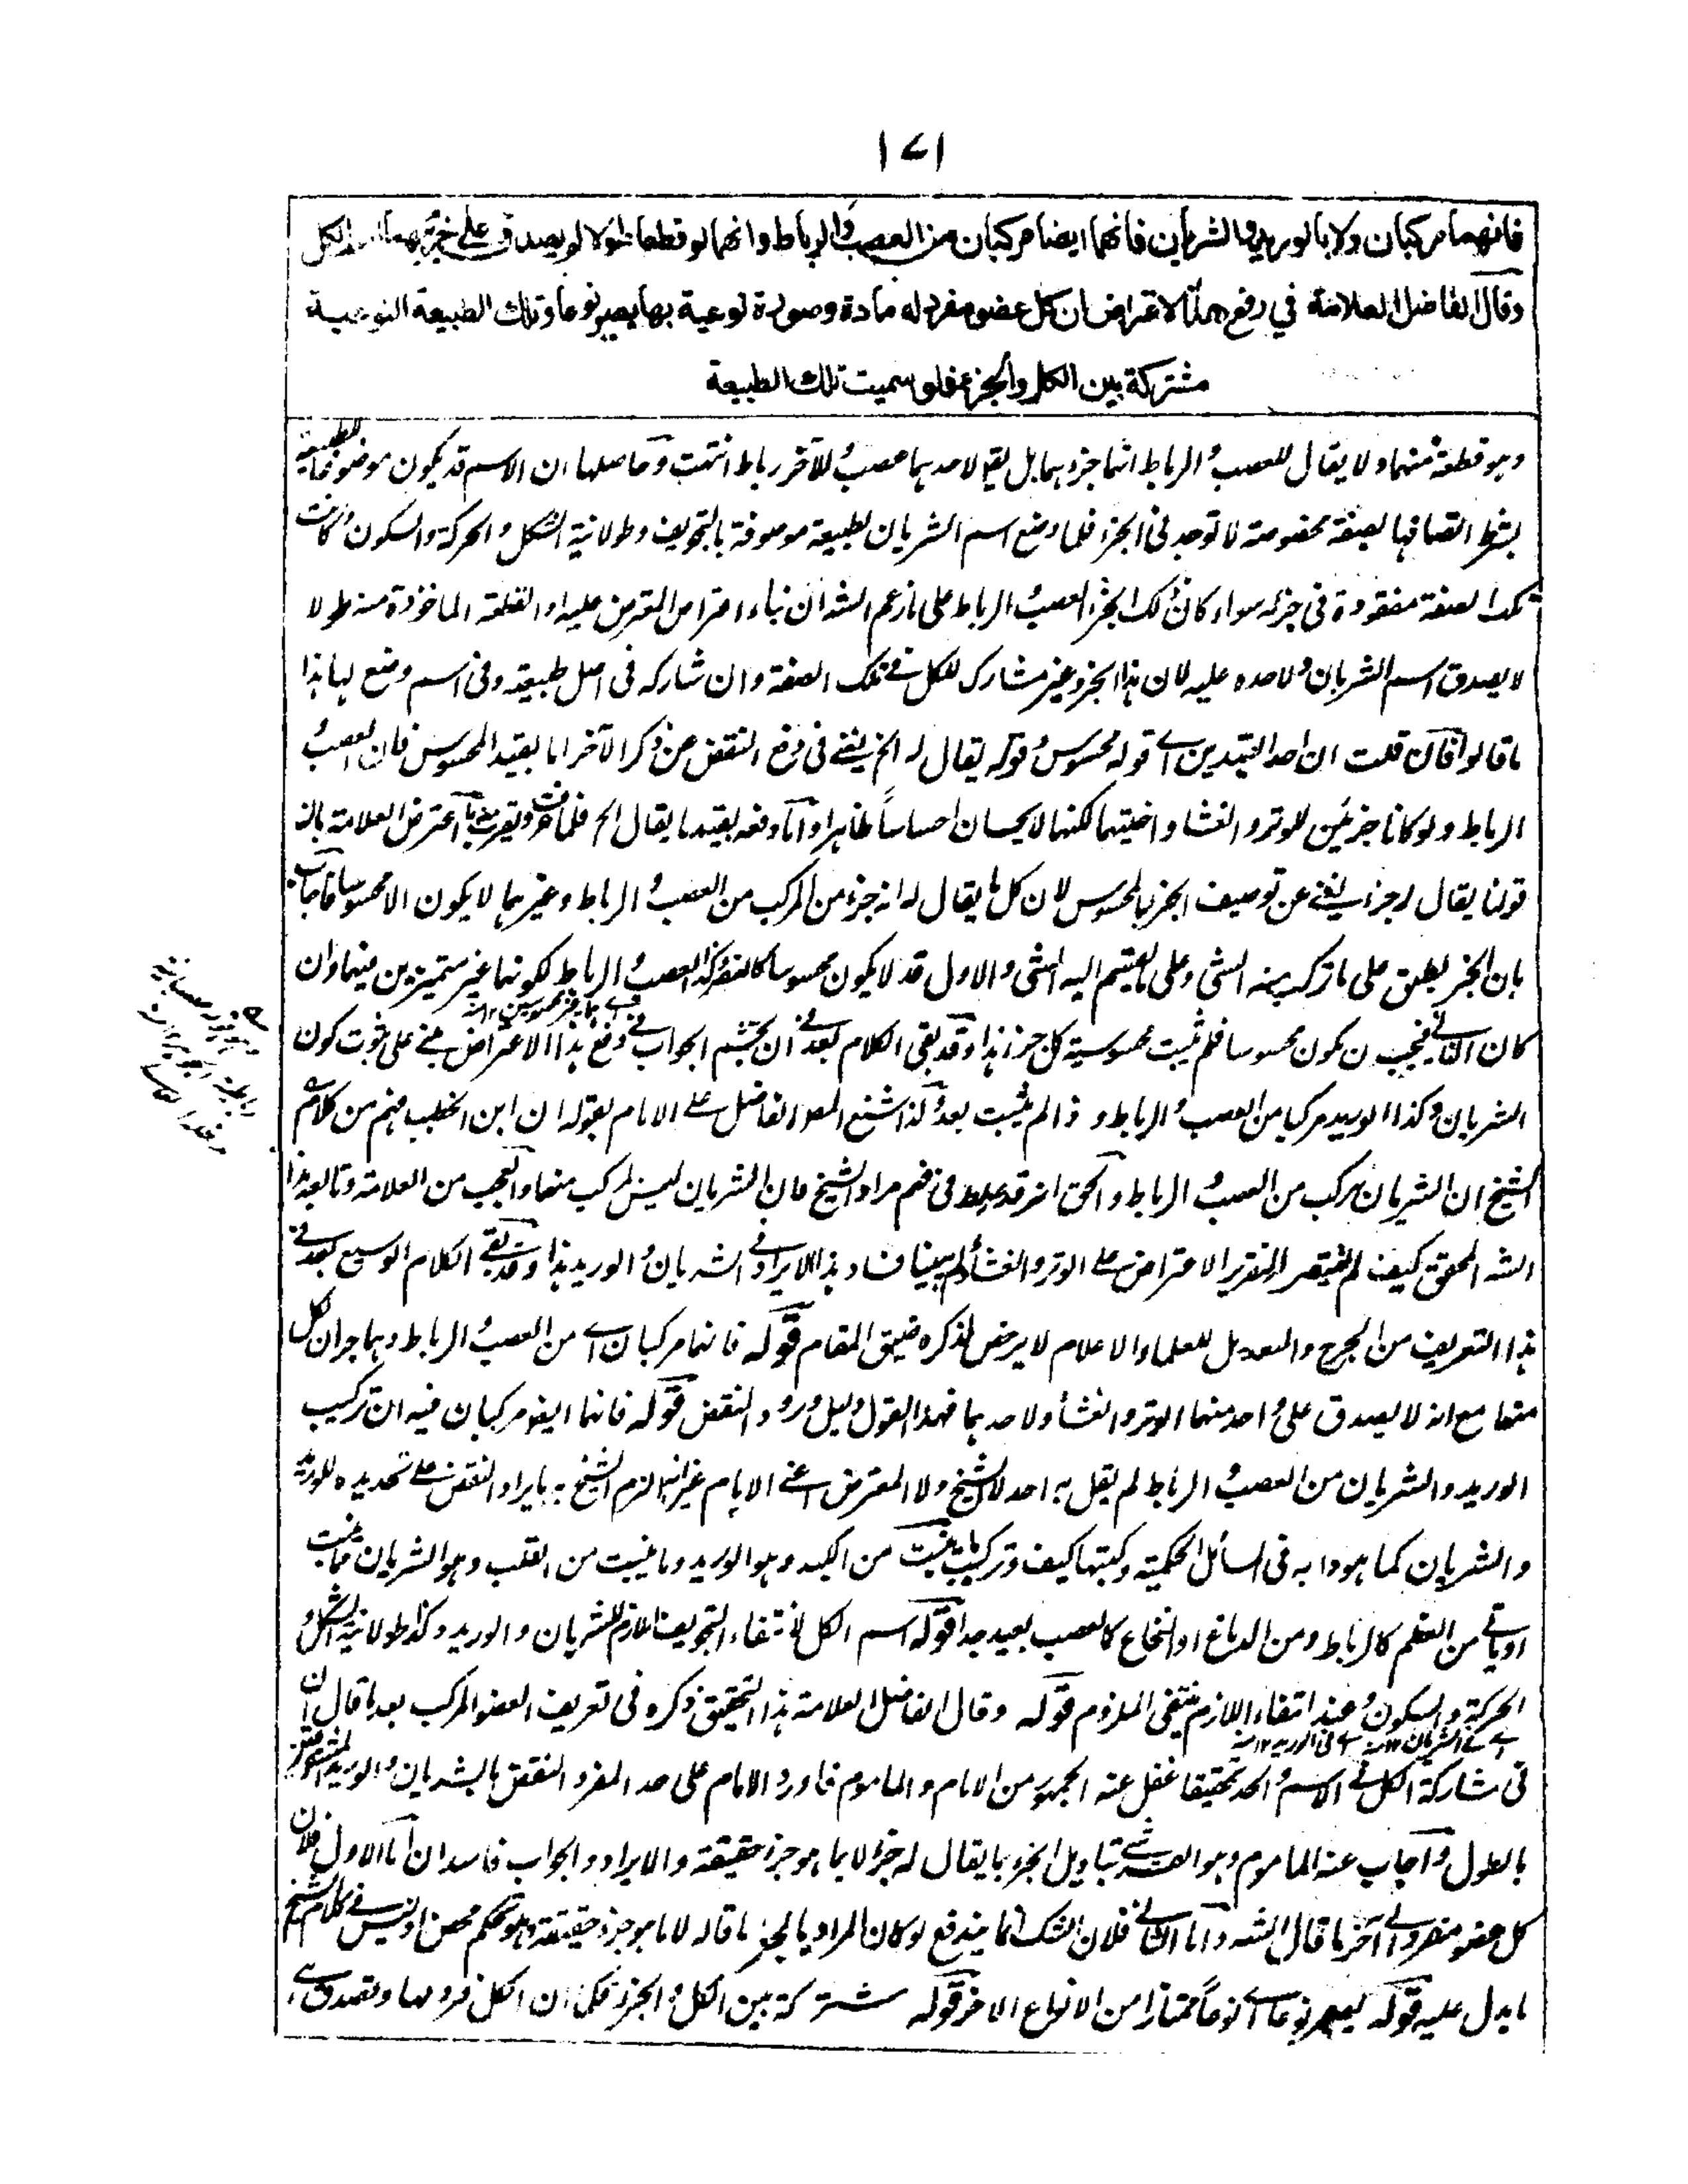 ۱۷۱
فانهما مركبان ولا بالوريد والشريان فانهما ايضا مركبان من العصب والرباط وانهما لو قطعا طولا لم يصدق على جزئهما اسم الكل
وقال الفاضل العلامة في رفع هذا الاعتراض ان كل عضو مفرد له مادة وصورة نوعية بها يصير نوعا وتلك الطبيعة النوعية
مشتركة بين الكل والجزء فلو سميت تلك الطبيعة
وهو قطعة منهما ولا يقال للعصب والرباط انهما جزءهما بل يقع لاحدهما عصب وللآخر رباط انتهت وحاصلها ان الاسم قد يكون موضوعا للطبيعة
بشرط اتصافها بصفة مخصوصة لا توجد فى الجزء فلما وضع اسم الشريان لطبيعة موصوفة بالتجويف وطولانية الشكل والحركة والسكون وكانت
تلك الصفة مفقودة فى جزئه سواء كان ذلك الجزء العصب والرباط على ما زعم الشه ان بناء اعتراض المعترض عليه او القطعة الماخوذة منه طولا
لا يصدق اسم الشريان ولا حده عليه لان هذا الجزء غير مشارك للكل فى تلك الصفة وان شاركه فى اصل طبيعته وفى اسم وضع لها هذا
ما قالوا فان قلت ان احد القيدين اى قوله محسوس وقوله يقال له الخ يغنى فى دفع النقض عن ذكر الآخر اما بقيد المحسوس فان العصب
والرباط ولو كانا جزئين للوتر والغشاء واخيتهما لكنهما لا يحسان احساسا ظاهرا واما دفعه بقيد ما يقال الخ فلما عرفت ويقرب منه ما اعترض العلامة بان
قولنا يقال له جزء يغنى عن توصيف الجزء بالمحسوس لان كل ما يقال له انه جزء من المركب من العصب والرباط وغيرهما لا يكون الا محسوسا فاجاب
بان الجزء يطلق على ما تركب منه الشئ وعلى ما ينقسم اليه الشئ والاول قد لا يكون محسوسا كالعصب والرباط لكونهما غير متميزين منهما وان
كان الثانى فيجب ان يكون محسوسا فلم يثبت محسوسية كل جزء هذا وقد بقى الكلام بعد فى ان تجشم الجواب فى دفع هذا الاعتراض مبنى على ثبوت كون
الشريان وكذا الوريد مركبا من العصب والرباط و ذا لم يثبت بعد ولذا شنع المصر الفاضل على الامام بقوله ان ابن الخطيب فهم من كلام
الشيخ ان الشريان مركب من العصب والرباط والحق انه قد غلط فى فهم مراد الشيخ فان الشريان ليس بمركب منهما والعجب من العلامة وتابعه هذا
الشه المحقق كيف لم يقتصر تقرير الاعتراض على الوتر والغشاء ولم يبينا فساد هذا الايراد فى الشريان والوريد هذا وقد بقى الكلام الوسيع بعد فى
هذا التعريف من الجرح والتعديل للعلماء الاعلام لا يرخص لذكره ضيق المقام قوله فانهما مركبان اى من العصب والرباط وهما جزءان لكل
منهما مع انه لا يصدق على واحد منهما الوتر والغشاء ولا حدهما فهذا القول دليل ورود النقض قوله فانهما ايضا مركبان فيه ان تركيب
الوريد والشريان من العصب والرباط لم يقل به احد لا الشيخ ولا المعترض اعنى الامام غير انه الزم الشيخ به بايراد النقض على تحديده للوريد
والشريان كما هو دابه فى المسائل الحكمية وكتبها كيف وتركيب ما ينبت من الكبد وهو الوريد وما ينبت من القلب وهو الشريان مما ينبت
او ياتى من العظم كالرباط ومن الدماغ او النخاع كالعصب بعيد جدا قوله اسم الكل لانتفاء التجويف اللازم للشريان والوريد وكذا طولانية الشكل و
الحركة والسكون وعند انتفاء اللازم ينتفى الملزوم قوله وقال الفاضل العلامة هذا التحقيق ذكره فى تعريف العضو المركب بعد ما قال ان
فى مشاركة الكل فى الاسم والحد تحقيقا غفل عنه الجمهور من الامام والماموم فاورد الامام على حد المفرد النقض بالشريان والوريد
بالطول واجاب عنه الماموم وهو القرشى بتاويل الجزء بما يقال له جزء لا بما هو جزء حقيقة والايراد والجواب فاسدان اما الاول فلان
كل عضو مفرد الى آخر ما قال الشه واما الثانى فلان الشك انما يندفع لو كان المراد بالجزء ما قاله لا ما هو جزء حقيقة وهو تحكم محض اذ ليس فى كلام الشيخ
ما يدل عليه قوله ليصير نوعا اى نوعا ممتازا من الانواع الاخر قوله مشتركة بين الكل والجزء فكل ان الكل فرد لها وتصدق